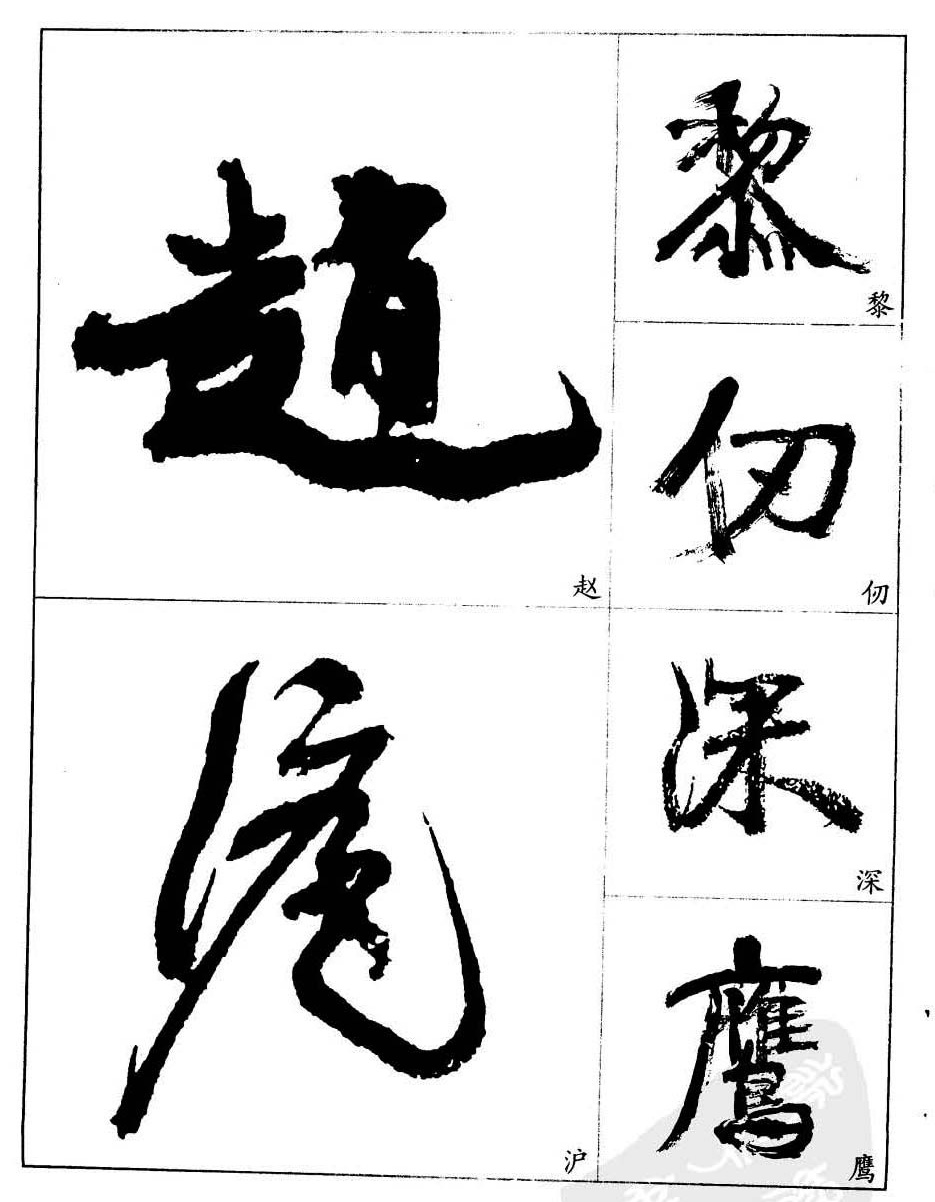 趙
赵
黎
黎
仞
仞
深
深
滬
沪
鷹
鹰